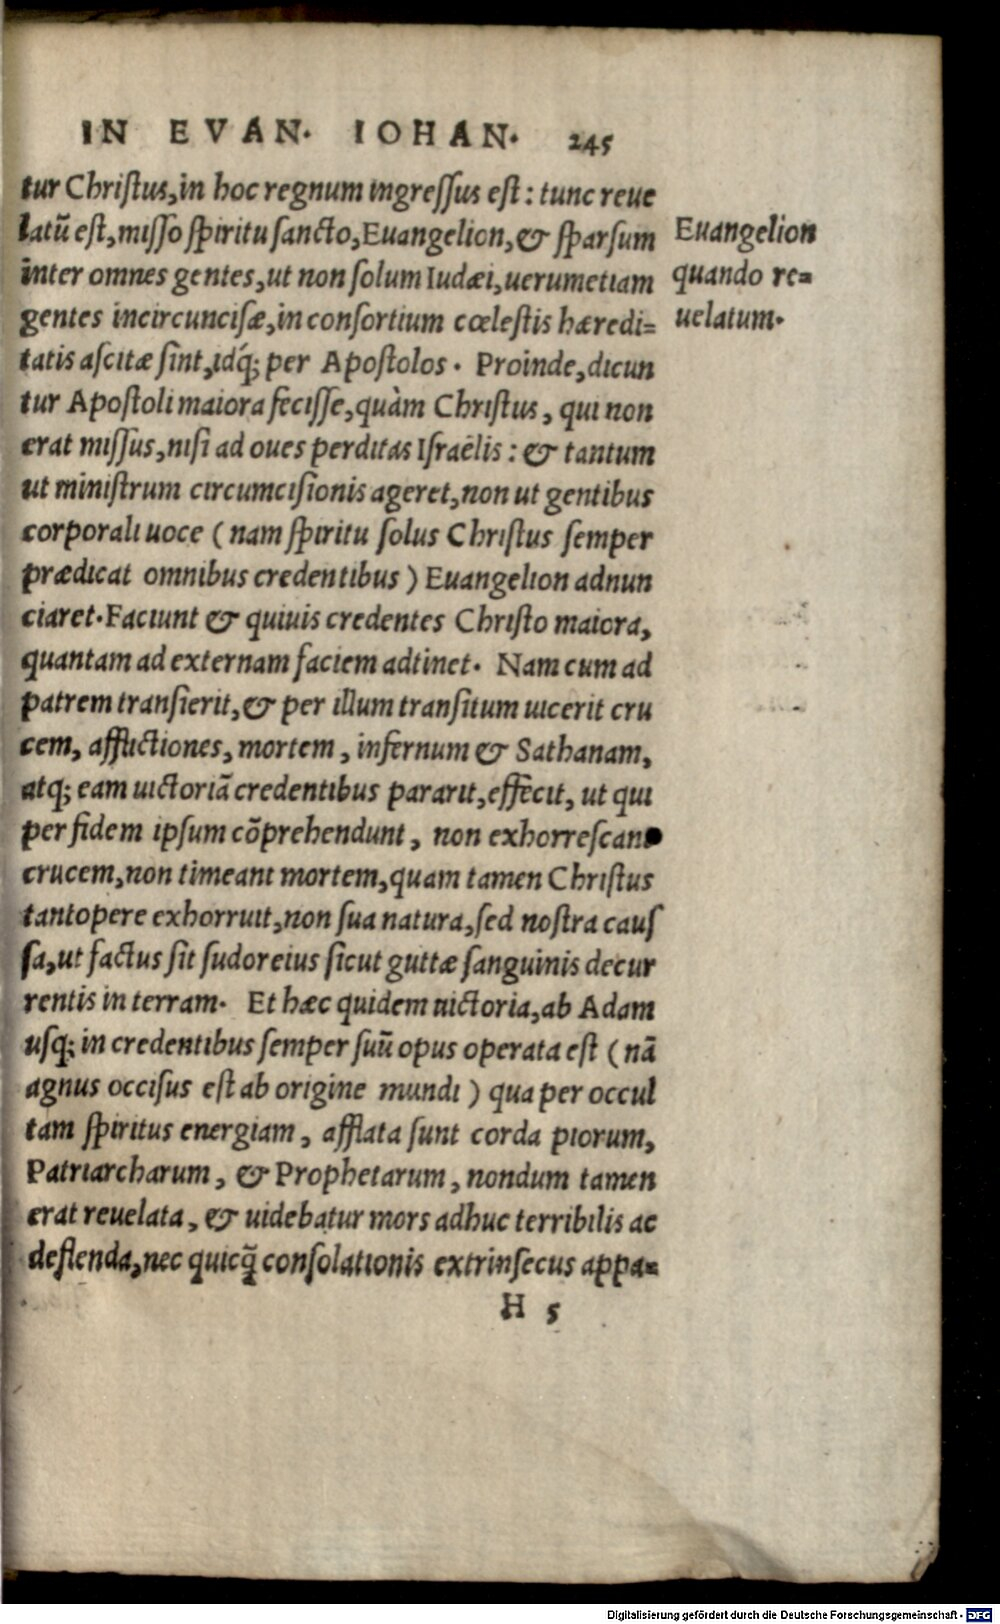 IN EVAN. IOHAN. 245
tur Christus, in hoc regnum ingressus est: tunc reue
latū est, misso spiritu sancto, Euangelion, & sparsum
inter omnes gentes, ut non solum Iudæi, uerumetiam
gentes incircuncisæ, in consortium cœlestis hæredi=
tatis ascitæ sint, idq́; per Apostolos. Proinde, dicun
tur Apostoli maiora fecisse, quàm Christus, qui non
erat missus, nisi ad oues perditas Israëlis: & tantum
ut ministrum circumcisionis ageret, non ut gentibus
corporali uoce (nam spiritu solus Christus semper
prædicat omnibus credentibus) Euangelion adnun
ciaret. Faciunt & quiuis credentes Christo maiora,
quantam ad externam faciem adtinet. Nam cum ad
patrem transierit, & per illum transitum uicerit cru
cem, afflictiones, mortem, infernum & Sathanam,
atq; eam uictoriā credentibus pararit, effecit, ut qui
per fidem ipsum cōprehendunt, non exhorrescant
crucem, non timeant mortem, quam tamen Christus
tantopere exhorruit, non sua natura, sed nostra caus
sa, ut factus sit sudor eius sicut guttæ sanguinis decur
rentis in terram. Et hæc quidem uictoria, ab Adam
usq; in credentibus semper suū opus operata est (nā
agnus occisus est ab origine mundi) qua per occul
tam spiritus energiam, afflata sunt corda piorum,
Patriarcharum, & Prophetarum, nondum tamen
erat reuelata, & uidebatur mors adhuc terribilis ac
deflenda, nec quicq̄ consolationis extrinsecus appa=
H 5
Euangelion
quando re=
uelatum.
Digitalisierung gefördert durch die Deutsche Forschungsgemeinschaft - DFG